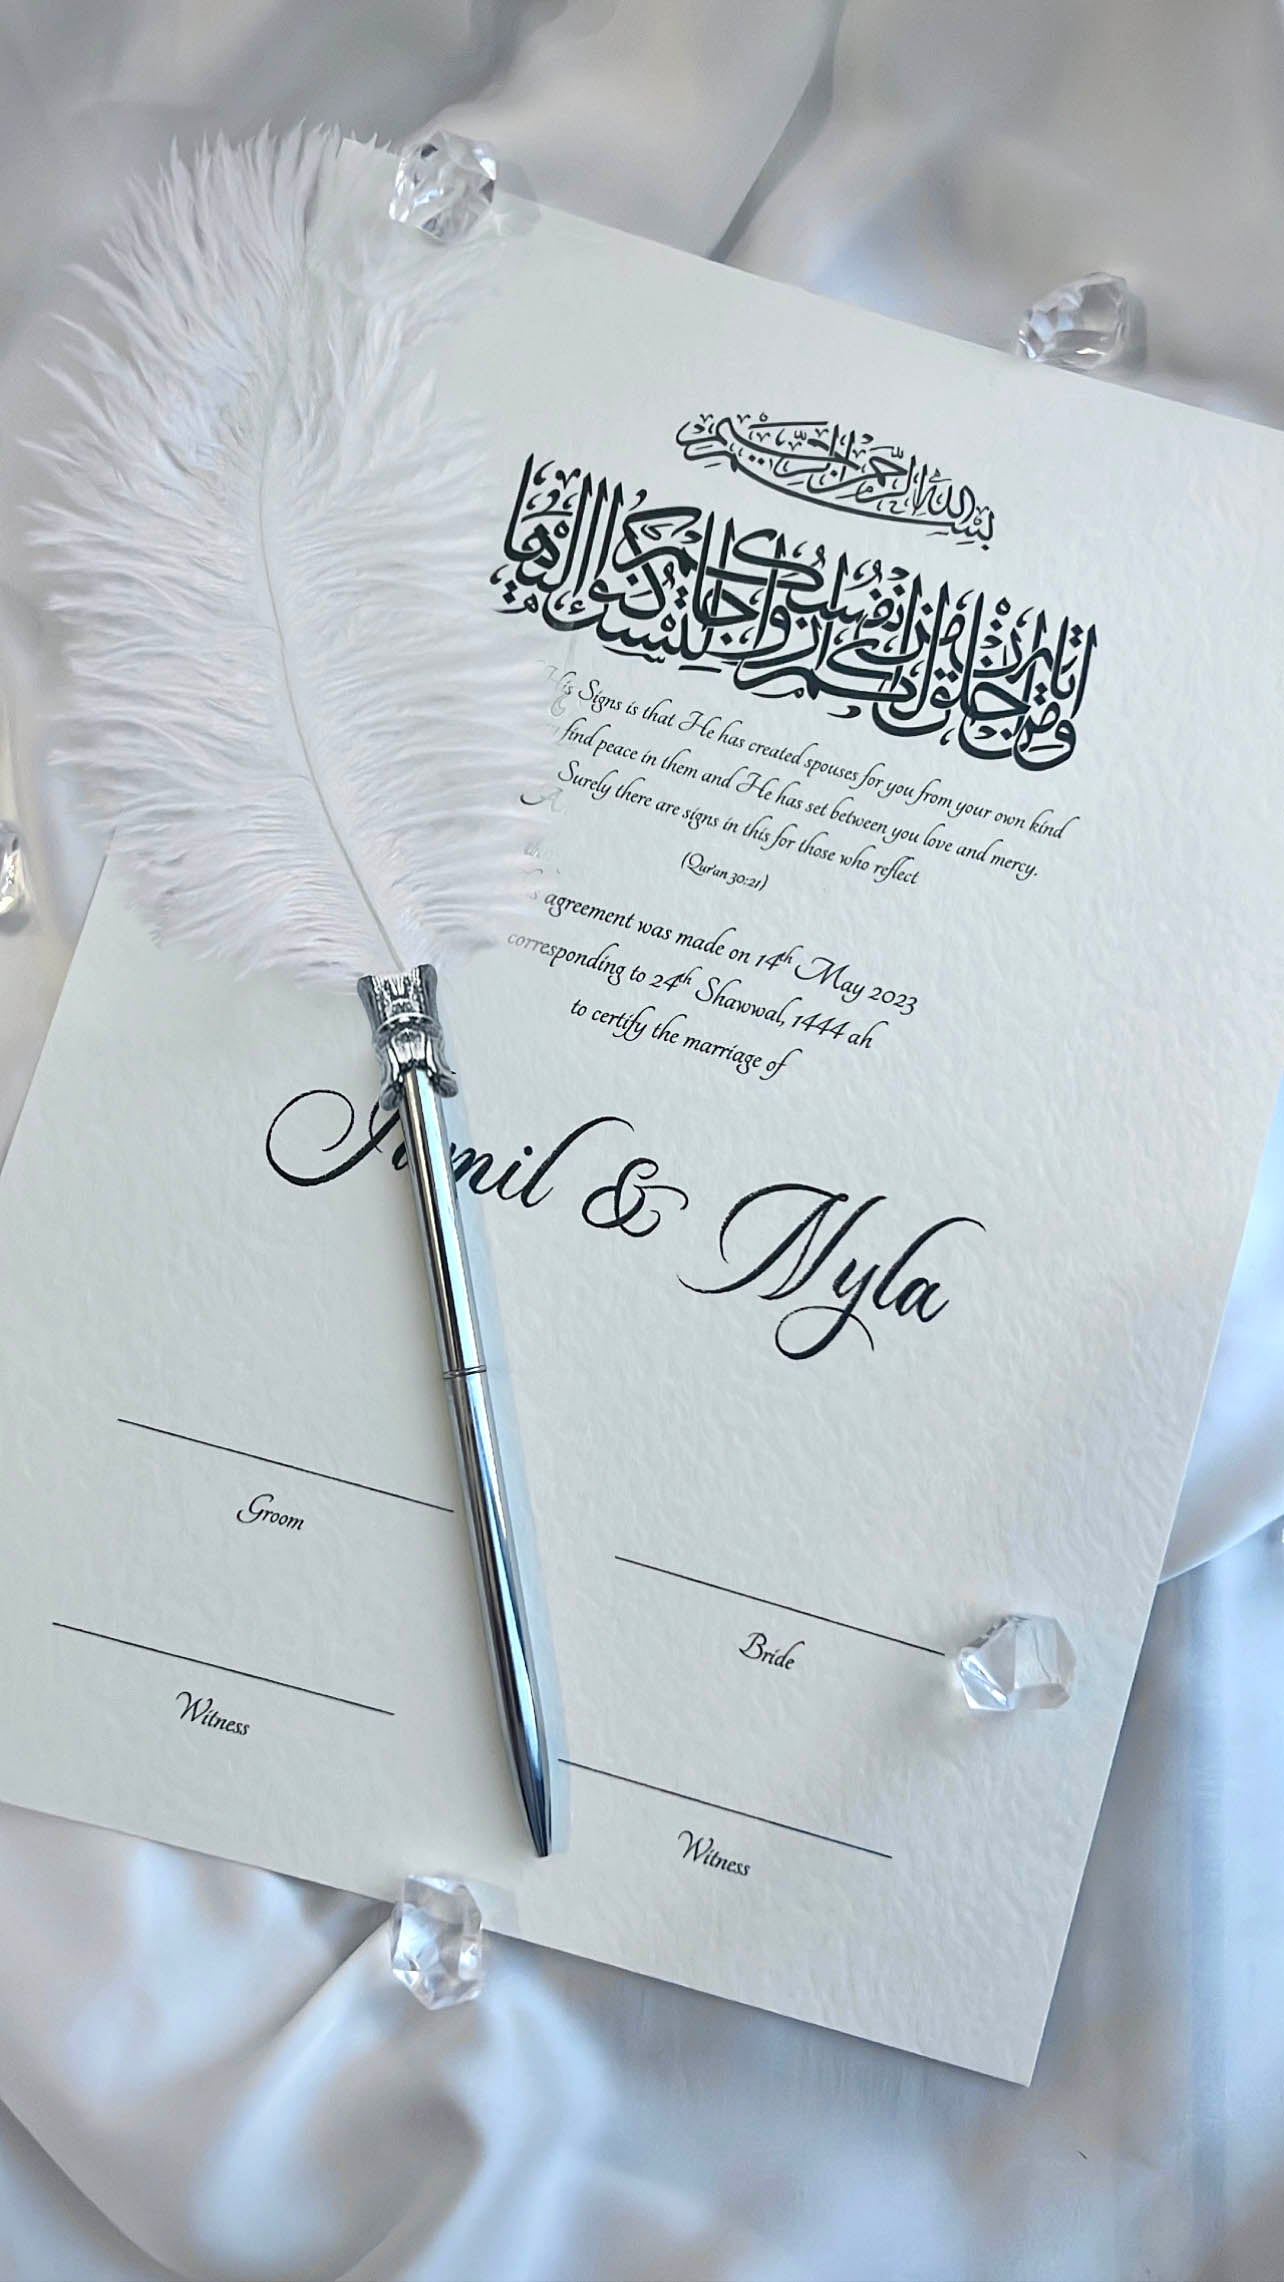 بسم الله الرحمن الرحيم
ومن اياته ان خلق لكم من انفسكم ازواجا لتسكنوا اليها
His Signs is that He has created spouses for you from your own kind
find peace in them and He has set between you love and mercy.
Surely there are signs in this for those who reflect
(Qur'an 30:21)
agreement was made on 14th May 2023
corresponding to 24th Shawwal, 1444 ah
to certify the marriage of
& Nyla
Groom
Bride
Witness
Witness